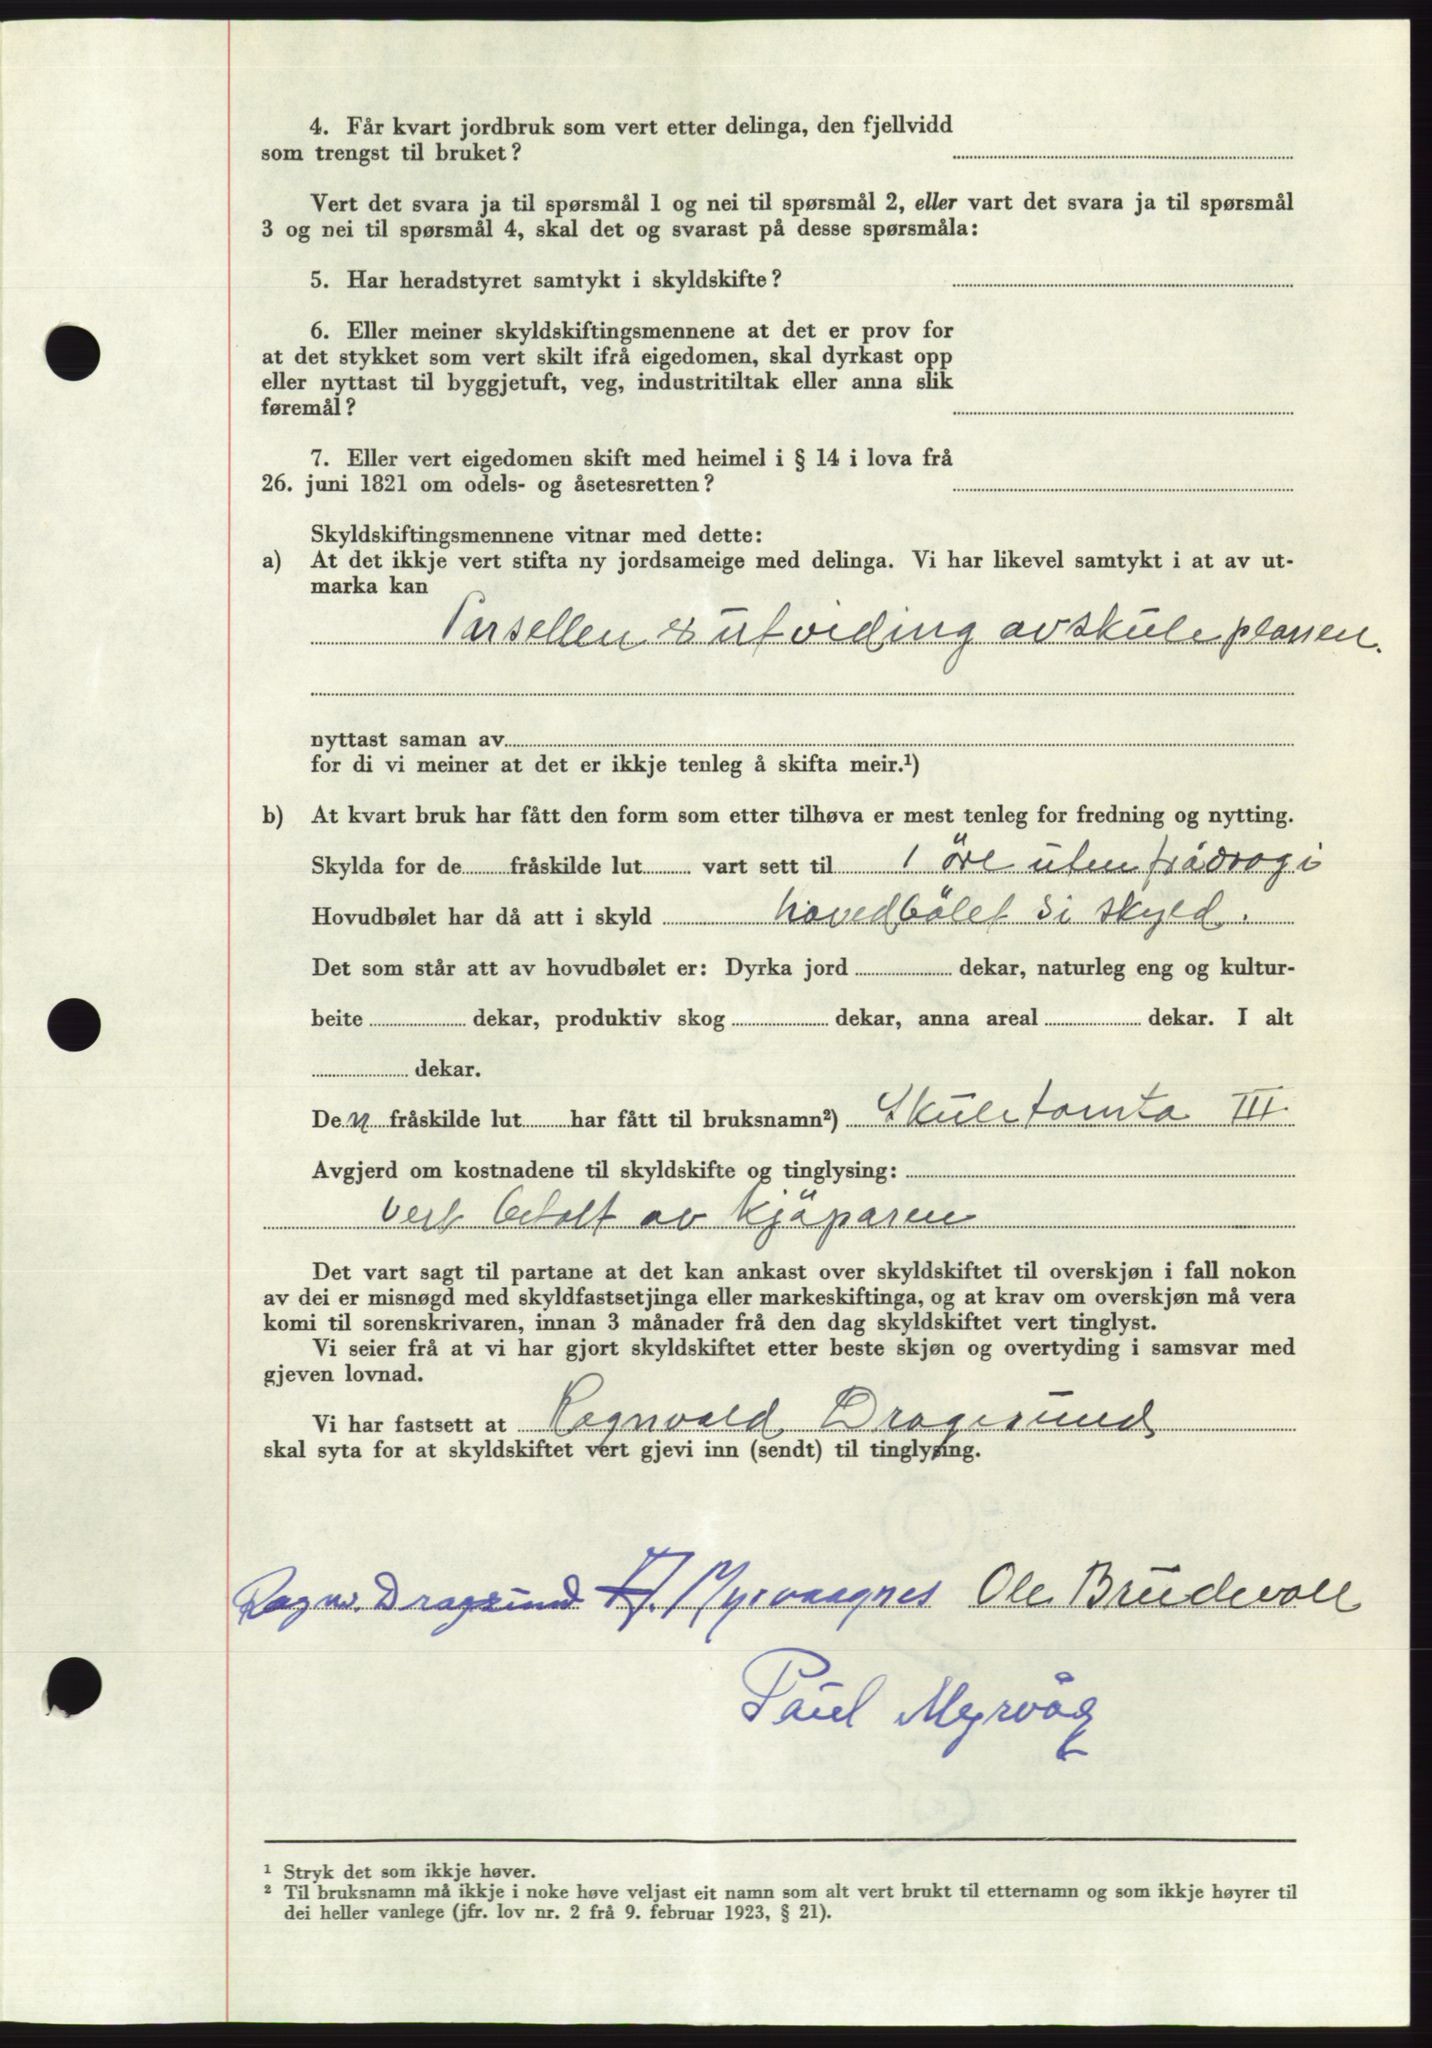 4. Får kvart jordbruk som vert etter delinga, den fjellvidd
som trengst til bruket?
Vert det svara ja til spørsmål 1 og nei til spørsmål 2, eller vart det svara ja til spørsmål
3 og nei til spørsmål 4, skal det og svarast på desse spørsmåla:
5. Har heradstyret samtykt i skyldskifte?
6. Eller meiner skyldskiftingsmennene at det er prov for
at det stykket som vert skilt ifrå eigedomen, skal dyrkast opp
eller nyttast til byggjetuft, veg, industritiltak eller anna slik
føremål?
7. Eller vert eigedomen skift med heimel i § 14 i lova frå
26. juni 1821 om odels- og åsetesretten?
Skyldskiftingsmennene vitnar med dette:
a) At det ikkje vert stifta ny jordsameige med delinga. Vi har likevel samtykt i at av ut-
marka kan
Parsellen er utviding av skuleplassen.
nyttast saman av
for di vi meiner at det er ikkje tenleg å skifta meir.¹)
b) At kvart bruk har fått den form som etter tilhøva er mest tenleg for fredning og nytting.
Skylda for de fråskilde lut vart sett til 1 öre uten frådrag i
Hovudbølet har då att i skyld hovedbölet si skyld.
Det som står att av hovudbølet er: Dyrka jord dekar, naturleg eng og kultur-
beite dekar, produktiv skog dekar, anna areal dekar. I alt
dekar.
Den fråskilde lut har fått til bruksnamn²) Skuletomta III.
Avgjerd om kostnadene til skyldskifte og tinglysing:
vert betalt av kjöparen
Det vart sagt til partane at det kan ankast over skyldskiftet til overskjøn i fall nokon
av dei er misnøgd med skyldfastsetjinga eller markeskiftinga, og at krav om overskjøn må vera
komi til sorenskrivaren, innan 3 månader frå den dag skyldskiftet vert tinglyst.
Vi seier frå at vi har gjort skyldskiftet etter beste skjøn og overtyding i samsvar med
gjeven lovnad.
Vi har fastsett at Ragnvald Dragesund
skal syta for at skyldskiftet vert gjevi inn (sendt) til tinglysing.
Ragnv. Dragesund A. Myrvaagnes Ole Brudevoll
Paul Myrvåg
¹ Stryk det som ikkje høver.
² Til bruksnamn må ikkje i noke høve veljast eit namn som alt vert brukt til etternamn og som ikkje høyrer til
dei heller vanlege (jfr. lov nr. 2 frå 9. februar 1923, § 21).